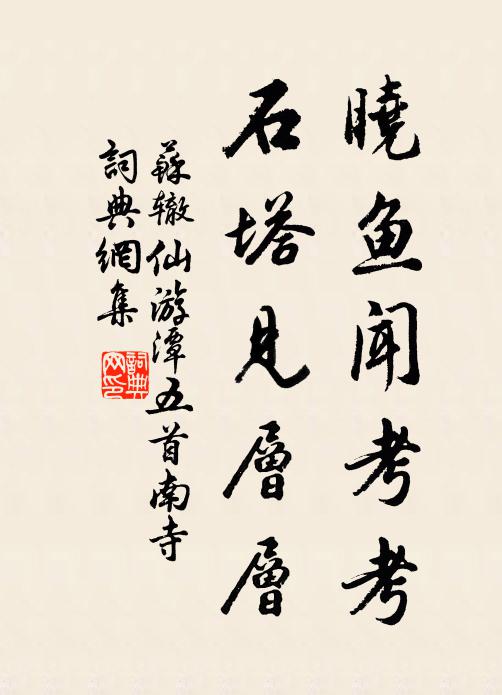 曉鱼闻考考
石塔見層層
蘇辙仙游潭五首南寺
詞典網集
詞典网印